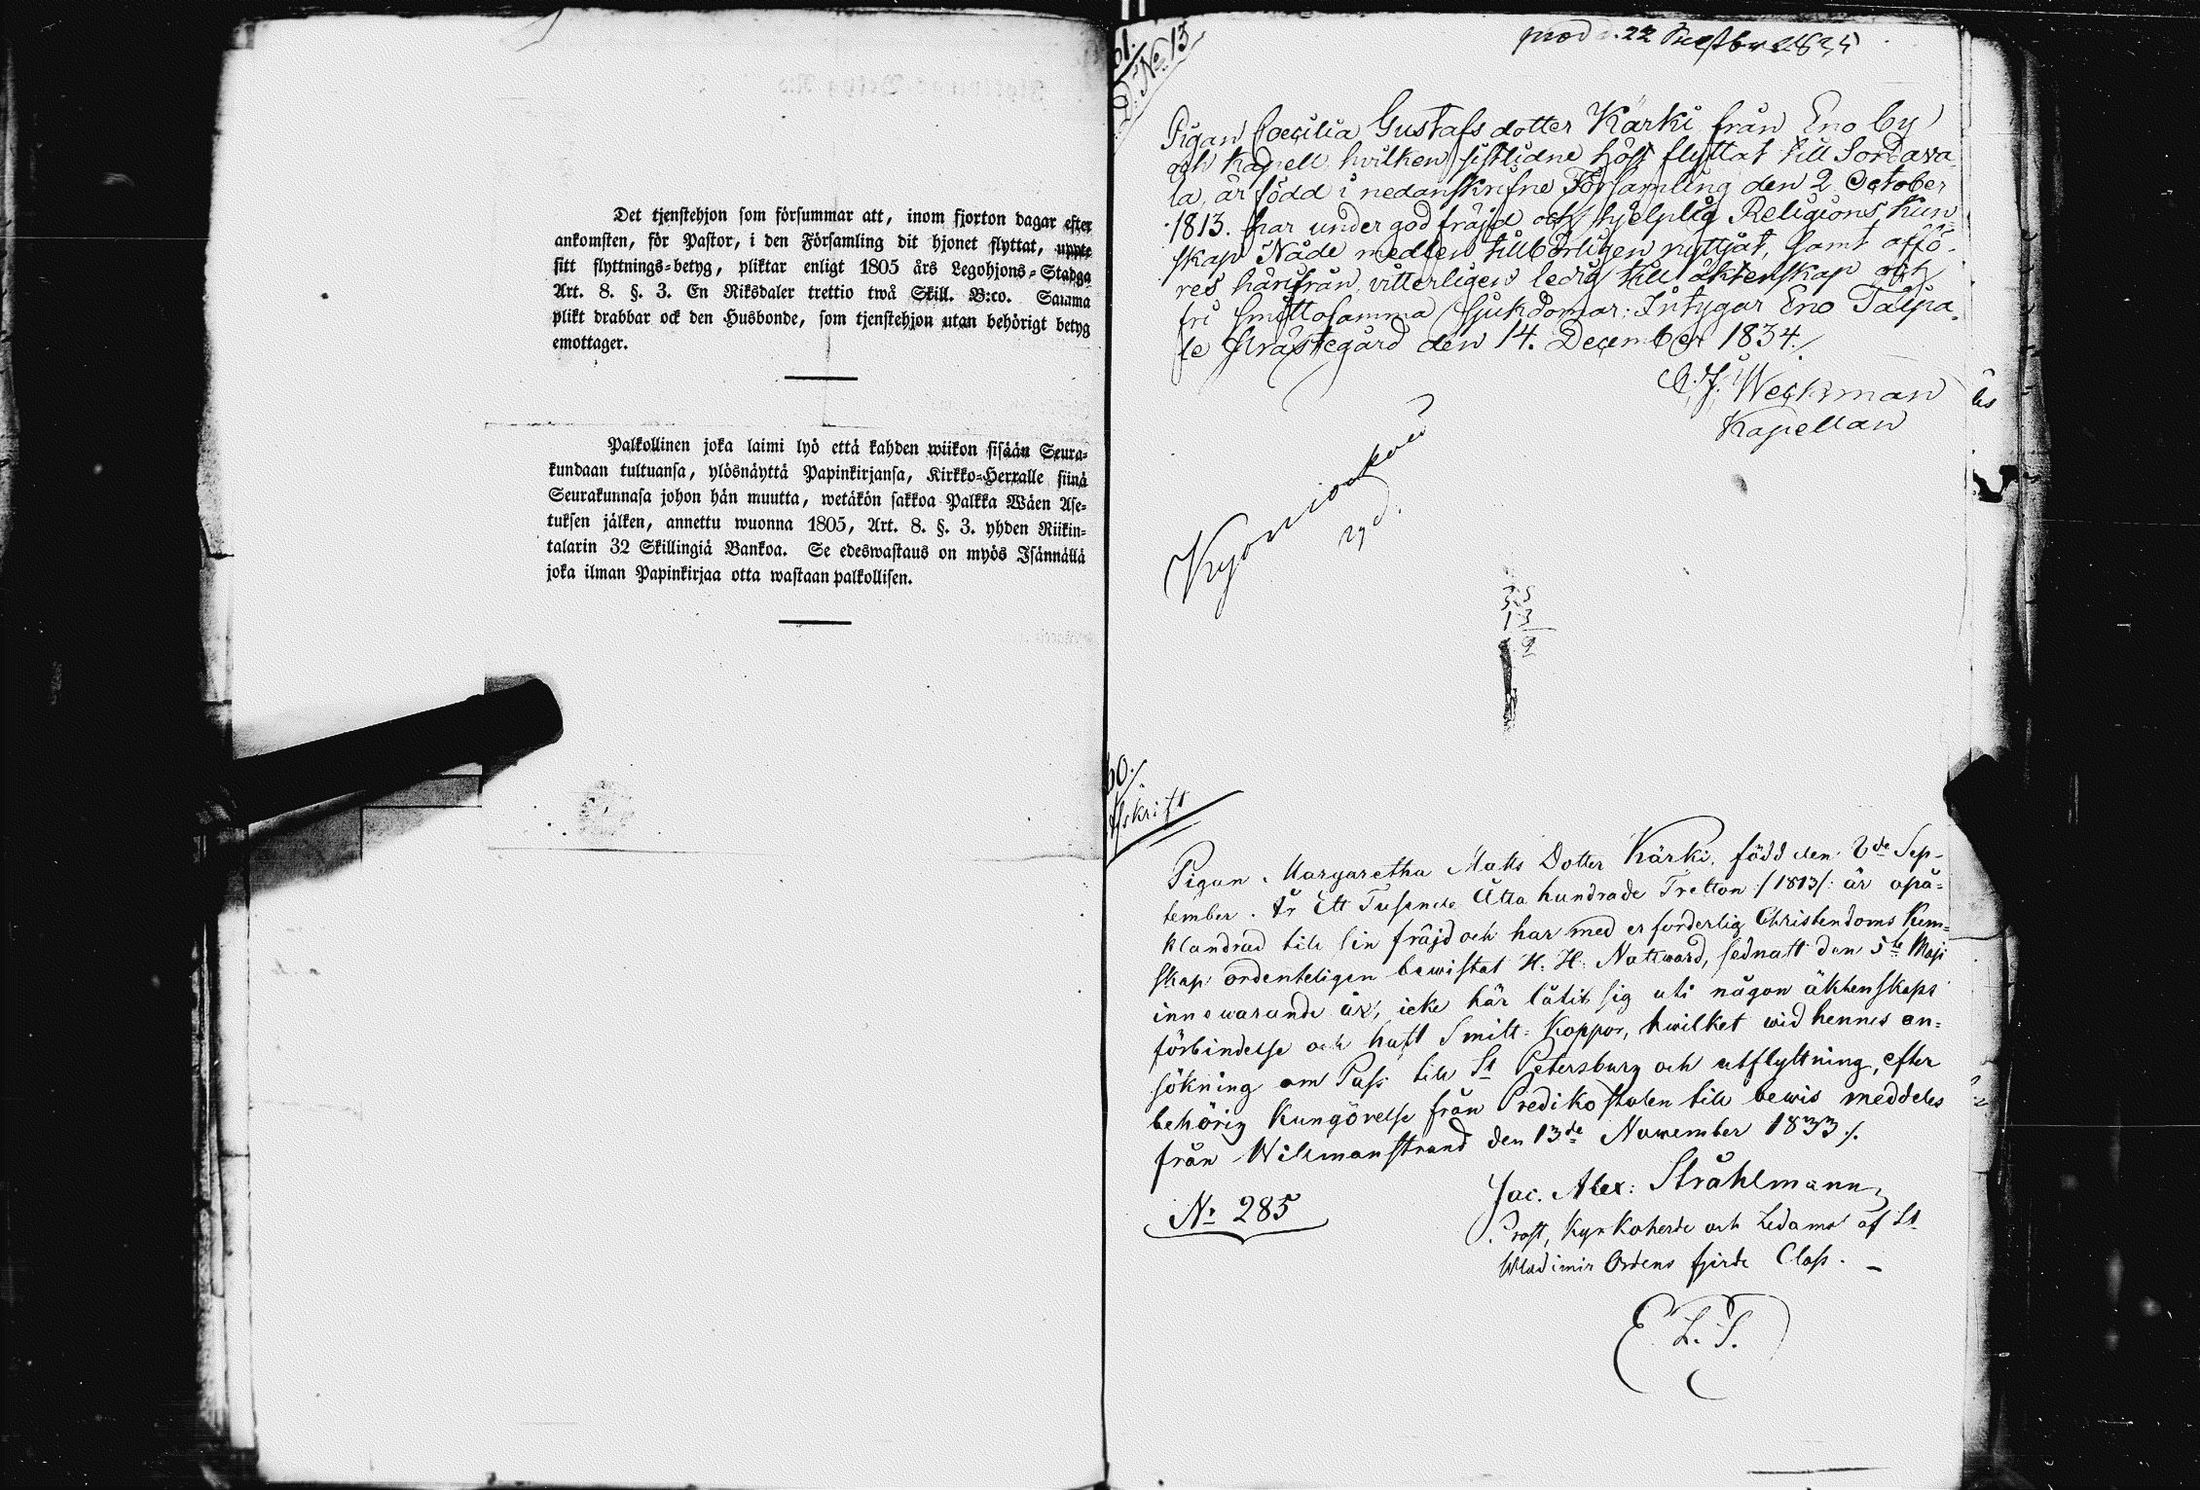 Det tjenstehjon som försummar att, inom fjorton dagar efter
ankomsten, för Pastor, i den Församling dit hjonet flyttat, uppte
sitt flyttnings-betyg, pliktar enligt 1805 års Legohjons-Stadga
Art. 8. §. 3. En Riksdaler trettio twå Skill. B:co. Samma
plikt drabbar ock den Husbonde, som tjenstehjon utan behörigt betyg
emottager.
Palkollinen joka laimi lyö että kahden wiikon sisään Seura-
kundaan tultuansa, ylösnäyttä Papinkirjansa, Kirkko-Herralle siinä
Seurakunnasa johon hän muutta, wetäkön sakkoa Palkka Wäen Ase-
tuksen jälken, annettu wuonna 1805, Art. 8. §. 3. yhden Riikin-
talarin 32 Skillingiä Bankoa. Se edeswastaus on myös Isännällä
joka ilman Papinkirjaa otta wastaan palkollisen.
61.
D: No 13
prod d. 22
Pigan Coecilia Gustafs dotter Kärki från Eno by
och Kapell hvilken sistlidne höst flyttat till Sordava-
la, är född i nedanskrifne Församling den 2 October
1813. har under god fräjd och hjelplig Religions Kun
skap Nåde medlen tillbörligen nyttjat, samt affö-
res härifrån vitterligen ledig till äktenskap och
fri smittosamma sjukdomar: Intygar Eno Taipa-
le Prästegård den 14. December 1834./
C. J. Weckman
Kapellan
35
13
60./
Afskrift
Pigan Margaretha Matts Dotter Kärki, född den 2de Sep-
tember År Ett Tusende Åtta hundrade Tretton /:1813/: är opå-
klandrad till sin fräjd och har med erforderlig Christendoms Kun-
skap ordenteligen bewistat H. H. Nattward, sednast den 5te Maji
innewarande år, icke här låtit sig uti någon äktenskaps
förbindelse och haft Smitt-Koppor, hwilket wid hennes an-
sökning om Pass till St Petersburg och utflyttning, efter
behörig Kungörelse från Predikostolen till bewis meddeles
från Wilmanstrand den 13de November 1833./.
No 285
Jac. Alex: Stråhlmann
Prost, Kyrkoherde och Ledamot af St
Wladimir Ordens fjerde Class. –
L. S.